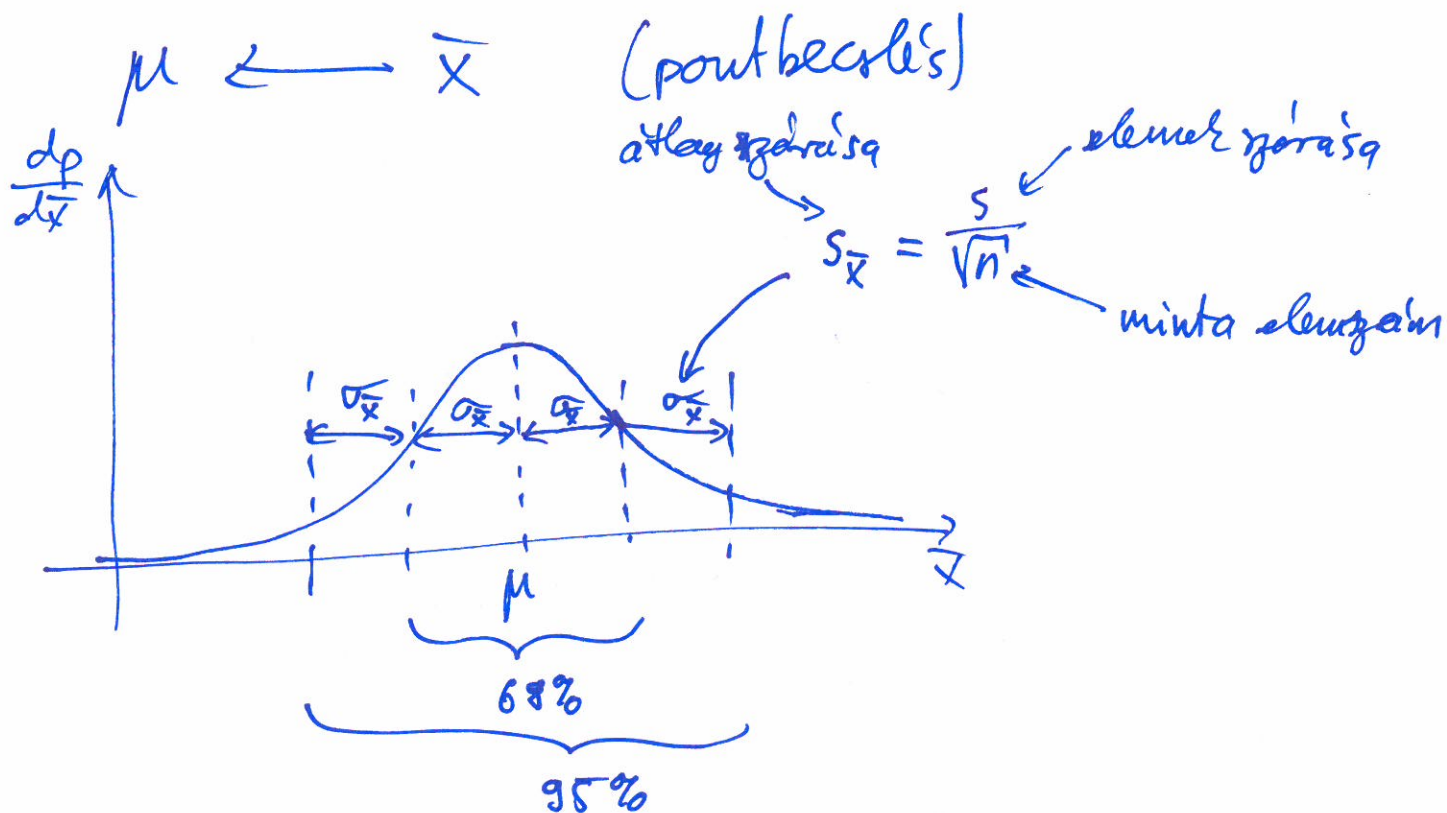 μ ← x̄ (pontbecslés)
átlag szórása
elemek szórása
s_x̄ = s/√n
minta elemszám
dp/dx̄
σ_x̄ σ_x̄ σ_x̄ σ_x̄
μ
x̄
68%
95%